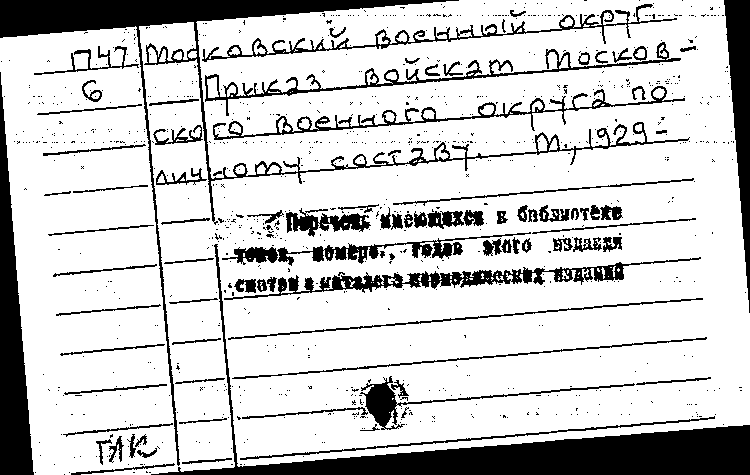 П47 Московский военный округ.
6 Приказ войскам Москов-
ского военного округа по
личному составу. М., 1929-
Перечень имеющихся в библиотеке
томов, номеров, годов этого издания
смотри в каталоге периодических изданий
ГАК